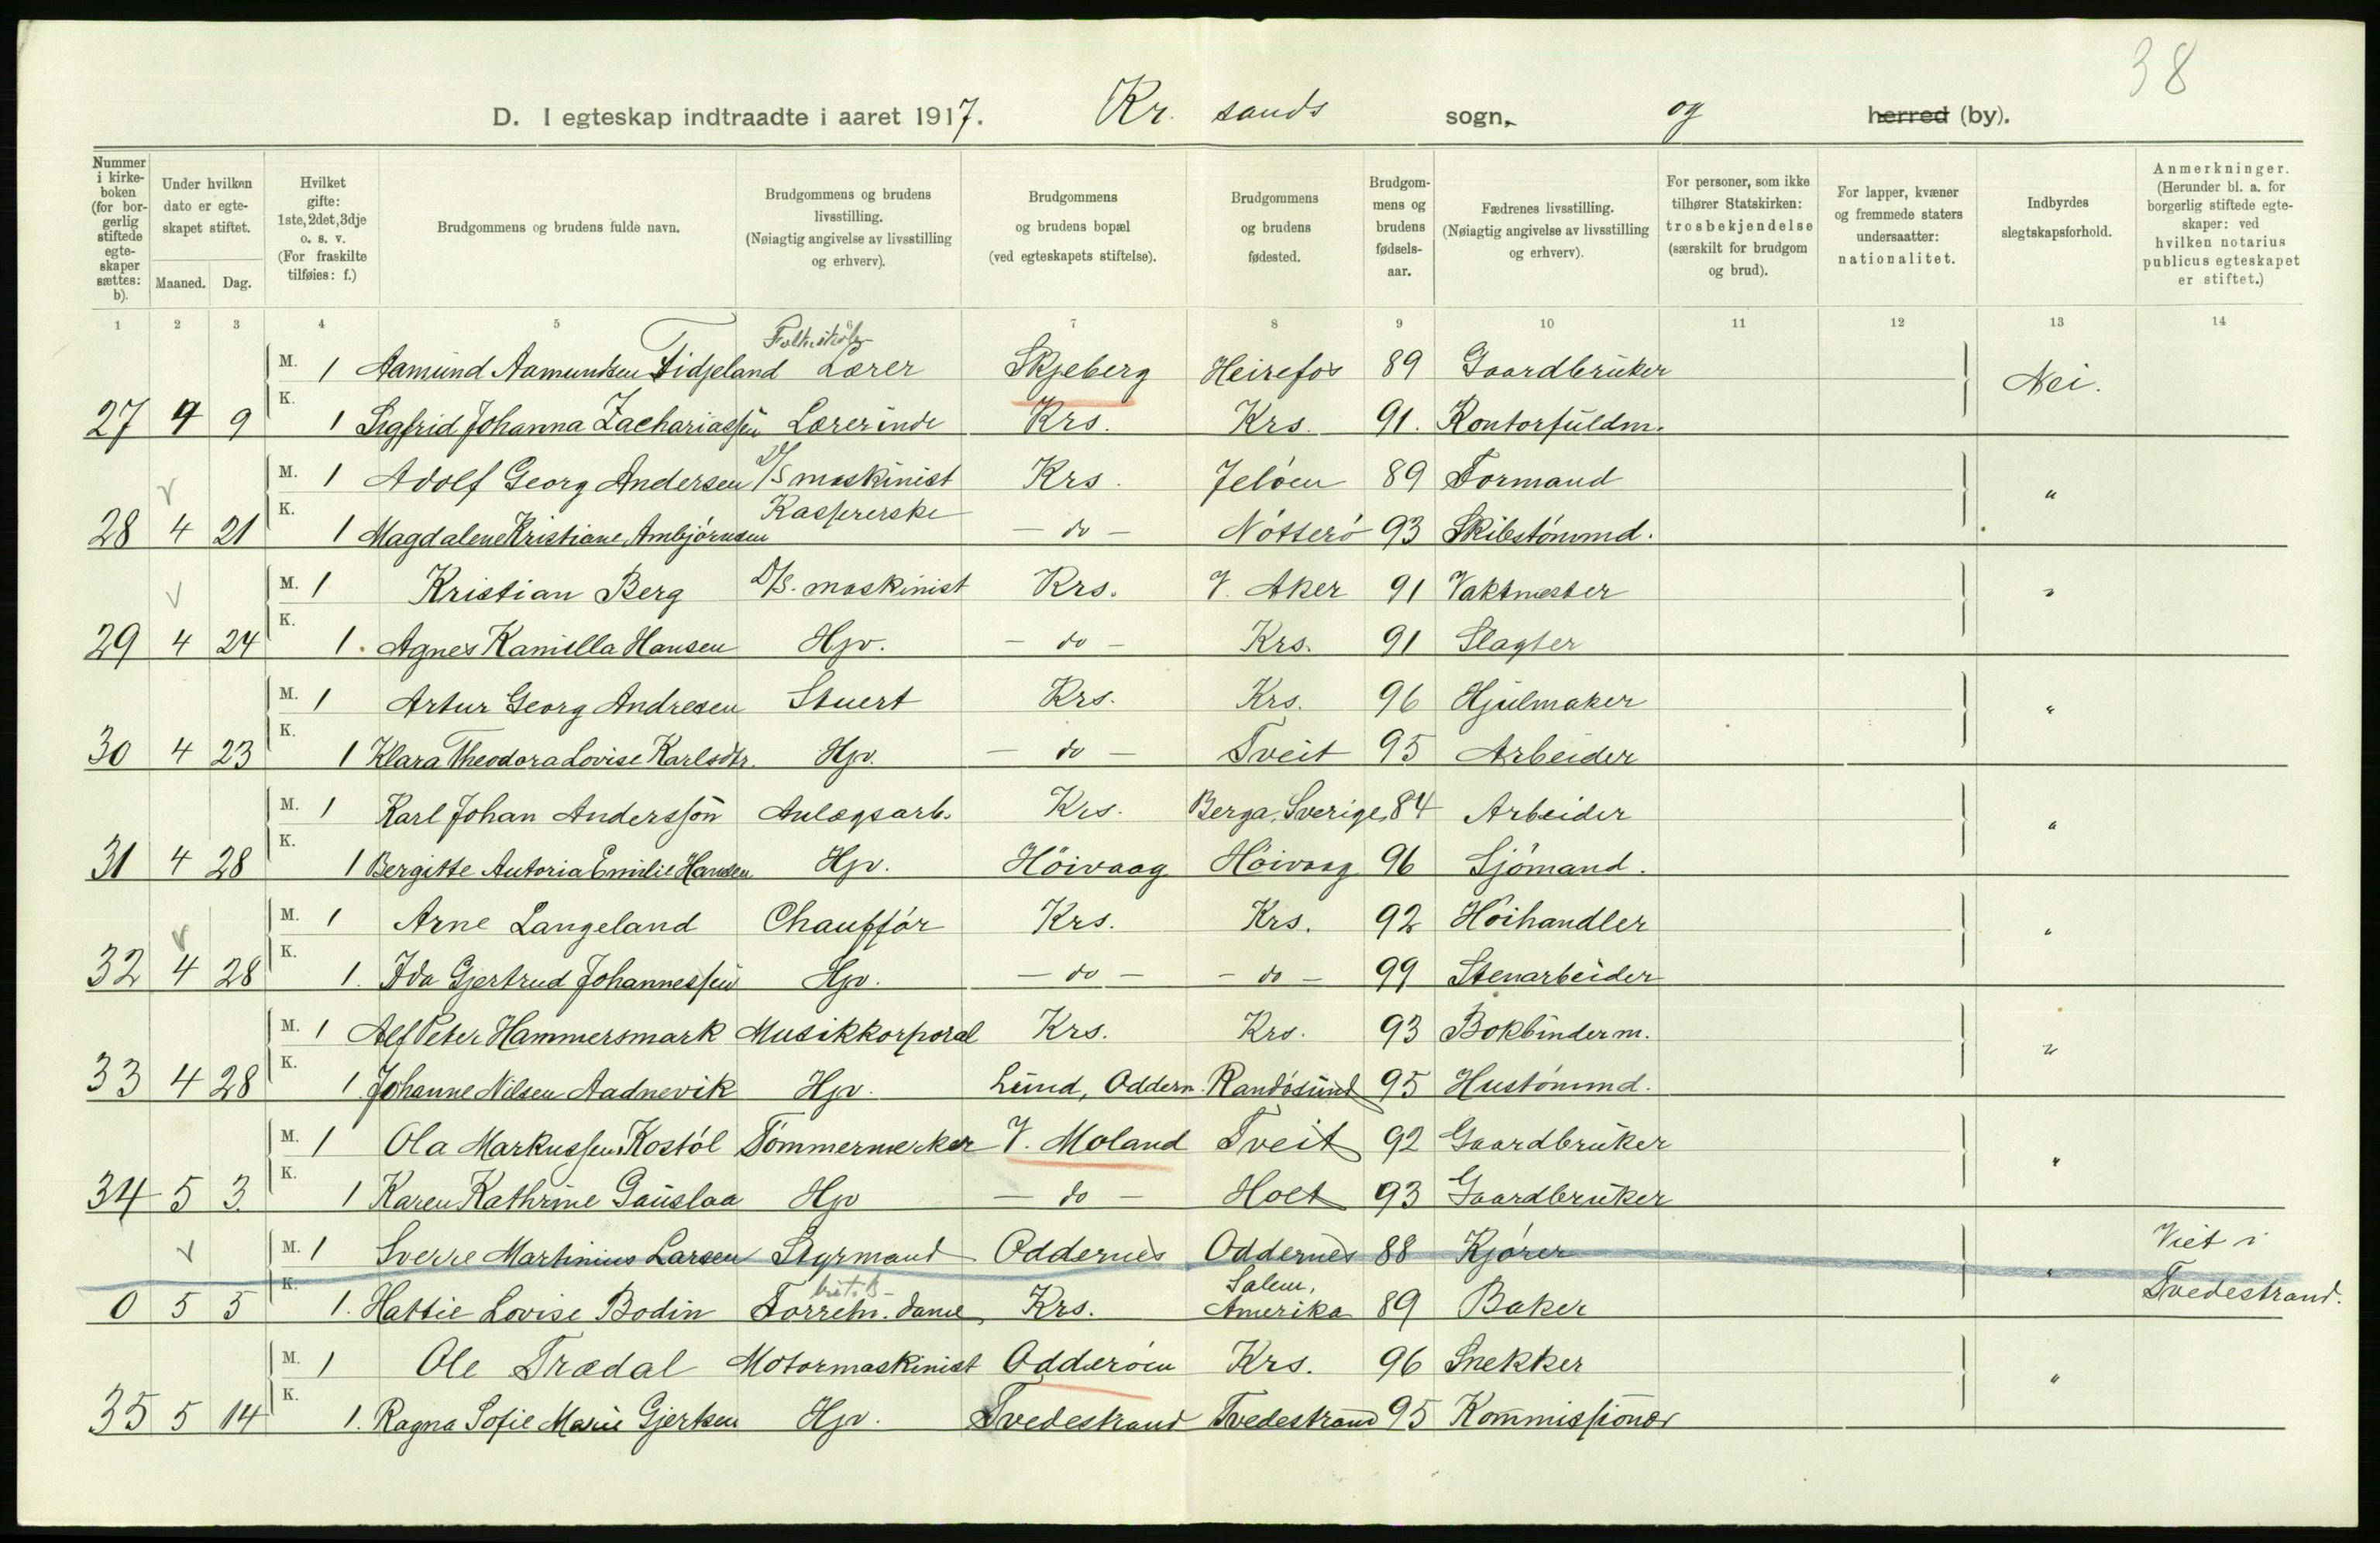 38
D. I egteskap indtraadte i aaret 1917. Kr. sands sogn, og herred (by).
Nummer i kirkeboken (for borgerlig stiftede egteskaper sættes: b). Under hvilken dato er egteskapet stiftet. Maaned. Dag. Hvilket gifte: 1ste, 2det, 3dje o. s. v. (For fraskilte tilføies: f.) Brudgommens og brudens fulde navn. Brudgommens og brudens livsstilling. (Nøiagtig angivelse av livsstilling og erhverv). Brudgommens og brudens bopæl (ved egteskapets stiftelse). Brudgommens og brudens fødested. Brudgommens og brudens fødselsaar. Fædrenes livsstilling. (Nøiagtig angivelse av livsstilling og erhverv). For personer, som ikke tilhører Statskirken: trosbekjendelse (særskilt for brudgom og brud). For lapper, kvæner og fremmede staters undersaatter: nationalitet. Indbyrdes slegtskapsforhold. Anmerkninger. (Herunder bl. a. for borgerlig stiftede egteskaper: ved hvilken notarius publicus egteskapet er stiftet.)
1 2 3 4 5 6 7 8 9 10 11 12 13 14
M. 1 Aamund Aamundsen Fidjeland Lærer Skjeberg Heirefos 89 Gaardbruker Nei.
27 4 9 K. 1 Sigfrid Johanna Zachariassen Lærerinde Krs. Krs. 91. Kontorfuldm.
M. 1 Adolf Georg Andersen D/S maskinist Krs. Jelöen 89 Formand "
28 4 21 K. 1 Magdalene Kristiane Ambjörnsen Kassererske - do - Nötterö 93 Skibstömmd.
M. 1 Kristian Berg D/S. maskinist Krs. V. Aker 91 Vaktmester "
29 4 24 K. 1. Agnes Kamilla Hansen Hjv. - do - Krs. 91 Slagter
M. 1 Artur Georg Andresen Stuert Krs. Krs. 96 Hjulmaker "
30 4 23 K. 1 Klara Theodora Lovise Karlsdtr. Hjv. - do - Tveit 95 Arbeider
M. 1 Karl Johan Anderssön Anlægsarb. Krs. Berga, Sverige, 84 Arbeider "
31 4 28 K. 1 Bergitte Antoria Emilie Hansen Hjv. Höivaag Höivaag 96 Sjömand.
M. 1 Arne Langeland Chaufför Krs. Krs. 92 Höihandler "
32 4 28 K. 1. Ida Gjertrud Johannessen Hjv. - do - - do - 99 Stenarbeider
M. 1 Alf Peter Hammersmark Musikkorporal Krs. Krs. 93 Bokbinderm. "
33 4 28 K. 1 Johanne Nilsen Aadnevik Hjv. Lund, Oddern. Randösund 95 Hustömmd.
M. 1 Ola Markussen Kostöl Tömmermerker V. Moland Tveit 92 Gaardbruker "
34 5 3. K. 1 Karen Kathrine Gauslaa Hjv - do - Holt 93 Gaardbruker
M. 1 Sverre Martinius Larsen Styrmand Oddernes Oddernes 88 Kjörer " Viet i
0 5 5 K. 1. Hattie Lovise Bodin Forretn. dame Krs. Salem, Amerika 89 Baker Tvedestrand.
M. 1 Ole Trædal Motormaskinist Odderöen Krs. 96 Snekker "
35 5 14 K. 1. Ragna Sofie Marie Gjertsen Hjv. Tvedestrand Tvedestrand 95 Kommissionær